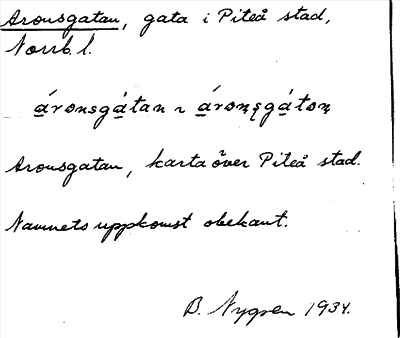 Aronsgatan, gata i Piteå stad,
Norrb. l.
á̲ronsgá̲tan ~ á̲ron̥s̨gá̲ton̥
Aronsgatan, karta över Piteå stad.
Namnets uppkomst obekant.
B. Nygren 1934.